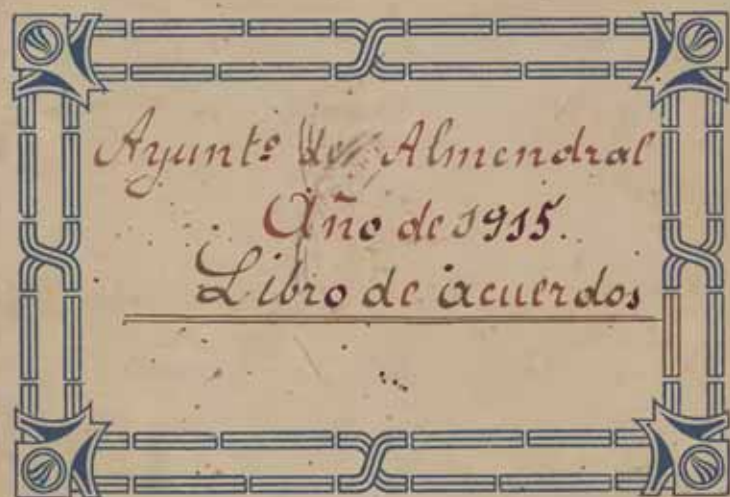 Ayuntº de Almendral
Año de 1915.
Libro de acuerdos